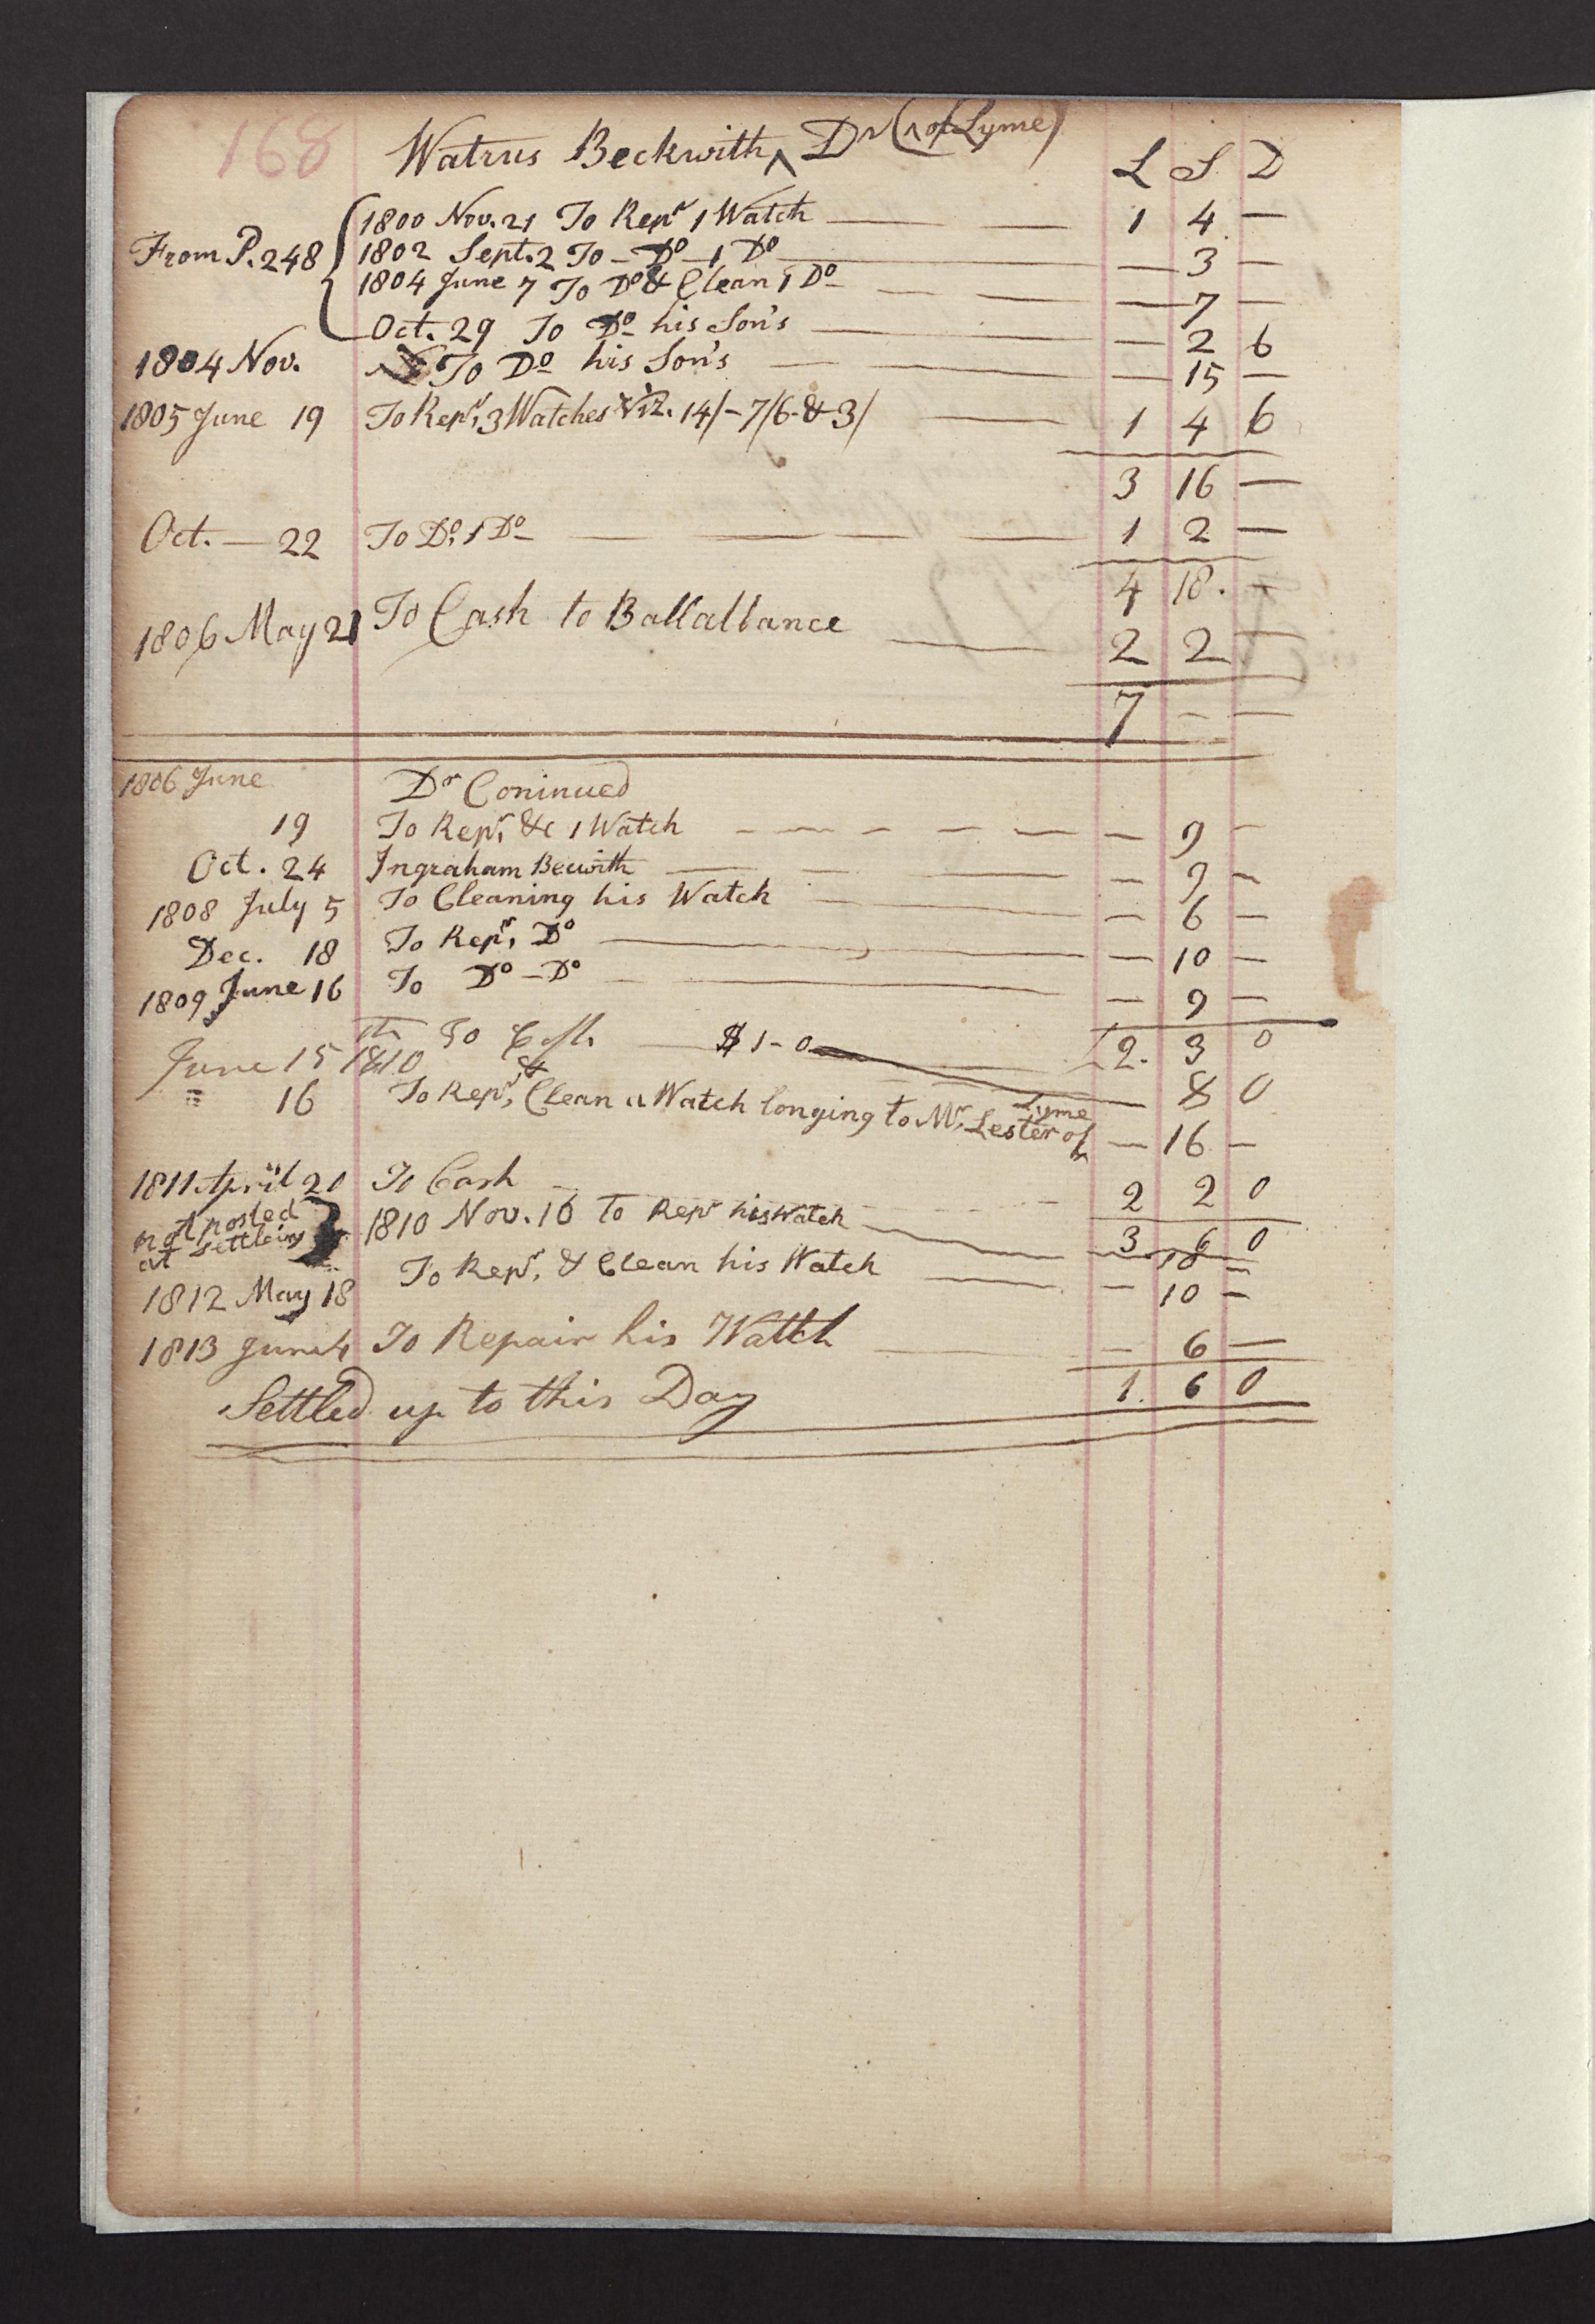 168 Watrus Beckwith ^ Dr (^ of Lyme)
L S D
1800 Nov. 21 To Repr 1 Watch — — 1 4 —
From P. 248 1802 Sept. 2 To – Do – 1 Do — — 3 —
1804 June 7 To Do & Clean 1 Do — — — 7 —
Oct. 29 To Do his Son's — — — 2 6
1804 Nov. To Do his Son's — — — 15 —
1805 June 19 To Repr. 3 Watches Viz. 14/– 7/6 & 3/ — 1 4 6
3 16 —
Oct. — 22 To Do. 1 Do — — — — 1 2 —
4 18. —
1806 May 21 To Cash to Ballallance — 2 2 —
7 – —
1806 June Dr Coninued
19 To Repr. &c 1 Watch – — – — — — 9 –
Oct. 24 Ingraham Becwith — — — — 9 –
1808 July 5 To Cleaning his Watch — — 6 —
Dec. 18 To Repr. Do — — 10 —
1809 June 16 To Do – Do — — 9 —
L 2. 3 0
June 15th 1810 To Cash — $1-0 — 0
" 16 To Repr, & Clean a Watch longing to Mr. Lester of Lyme — 16 –
1811 April 20 To Cash – – – 2 2 0
not posted at settleing 1810 Nov. 16 To Repr his Watch — — 10 –
3 6 0
1812 May 18 To Repr. & Clean his Watch — — 10 –
1813 June 4 To Repair his Watch — — 6 —
Settled up to this Day 1. 6 0